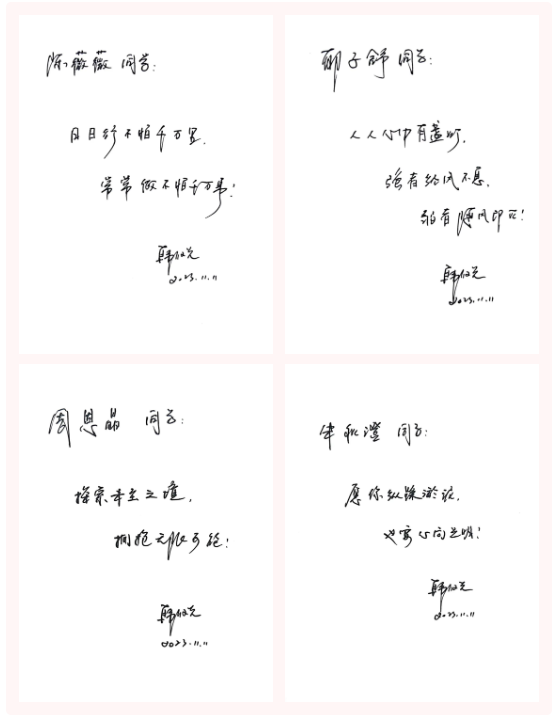 陈薇薇 同学:
日日行不怕千万里,
常常做不怕千万事!
2023.11.11
郦子舒同学:
人人心中有盏灯,
强者给风不息,
弱者随风即灭!
2023.11.11
周恩晶 同学:
探索未至之境,
拥抱无限可能!
2023.11.11
同学:
愿你纵踩淤泥,
也要心向光明!
2023.11.11